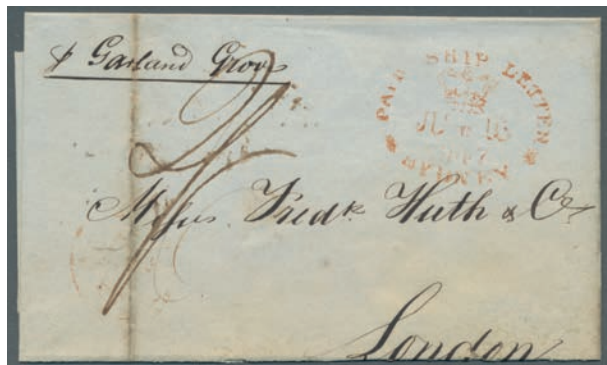 p Garland Grove
PAID SHIP LETTER
JU 16
SYDNEY
Messrs. Fredk Huth & Co
London